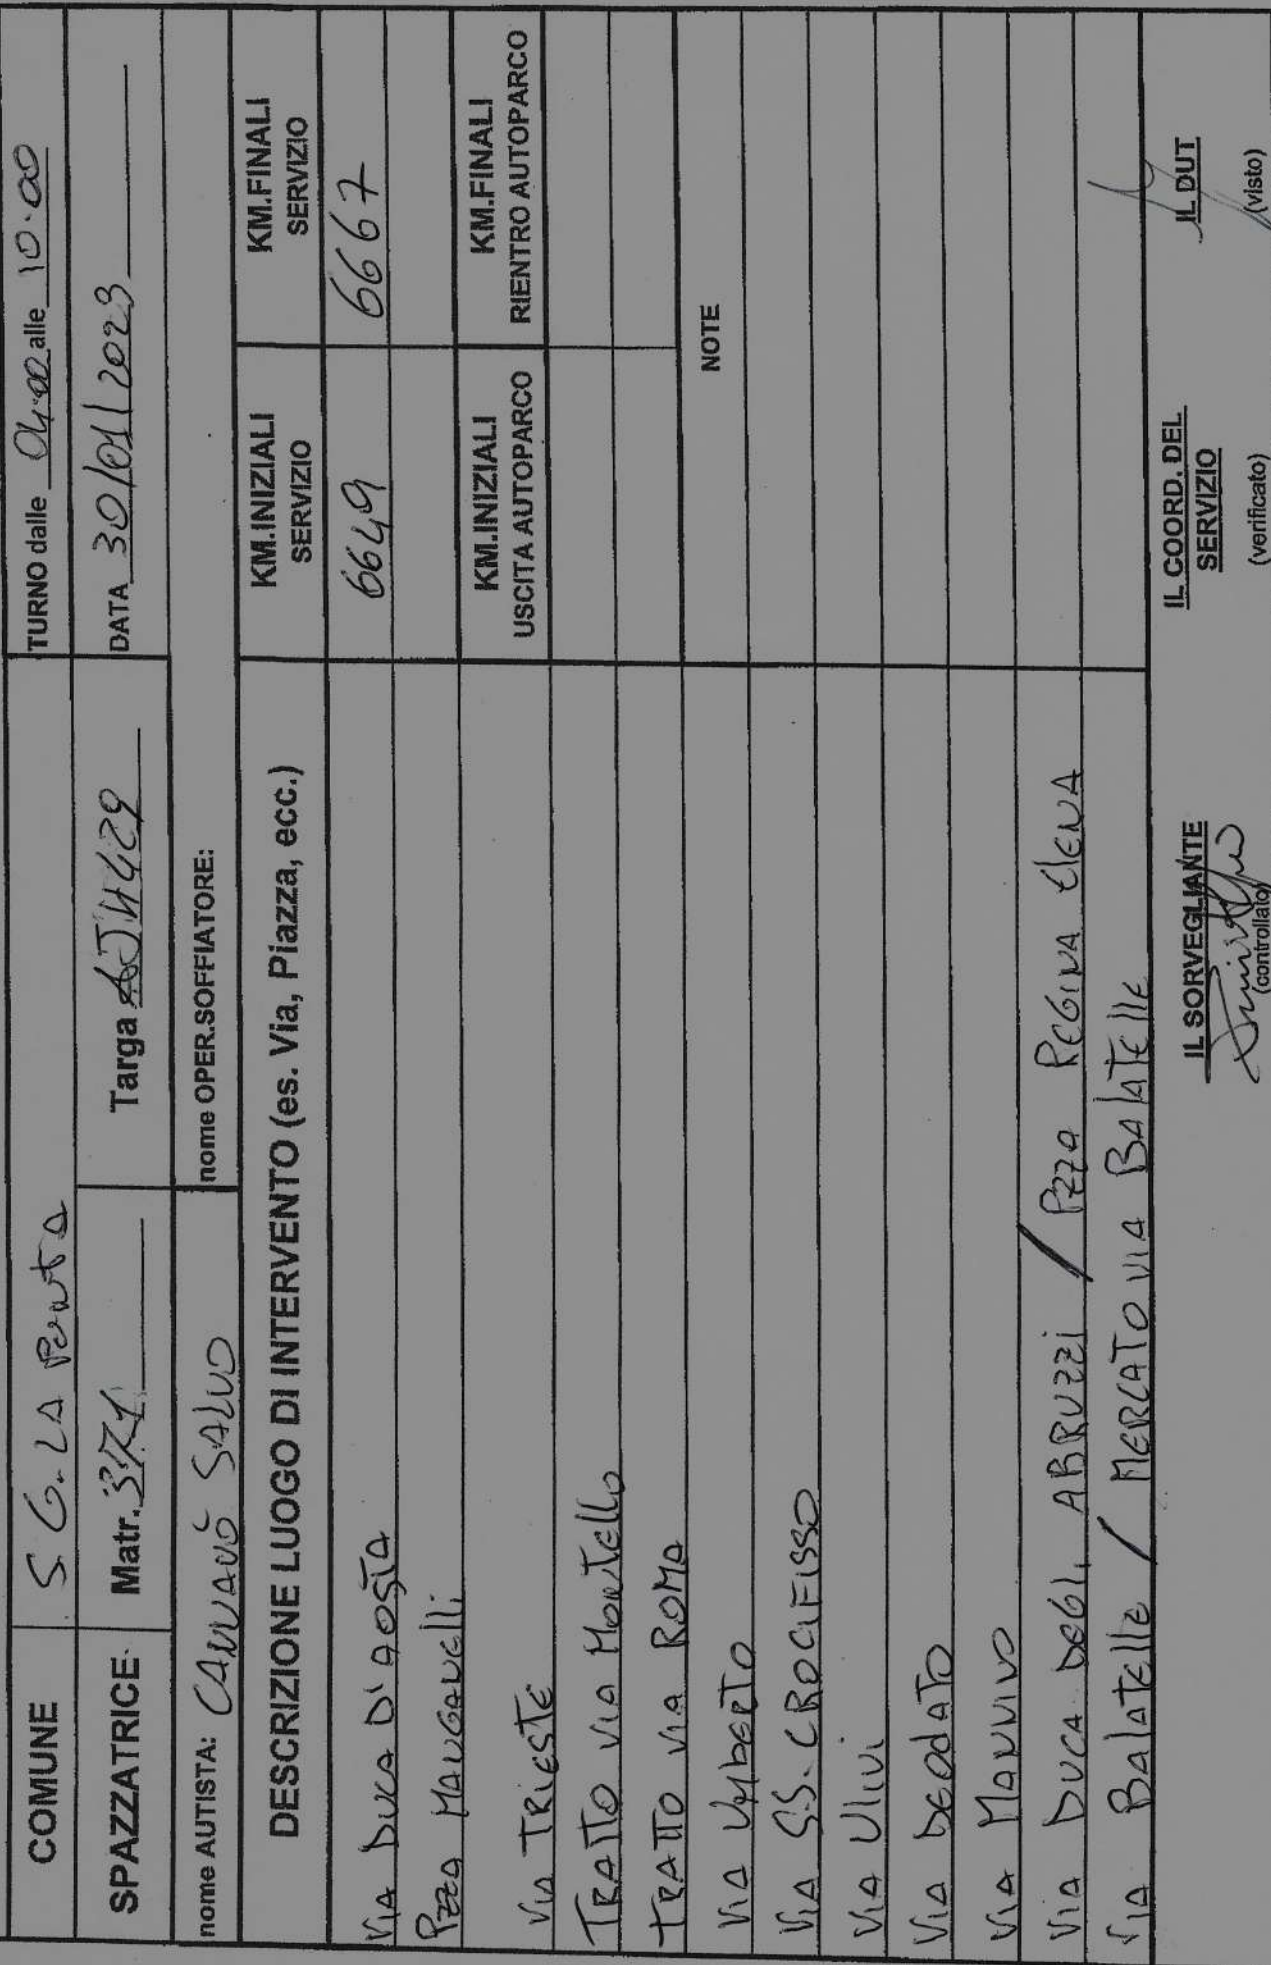 COMUNE S. G. LA Punta TURNO dalle 04:00 alle 10.00
SPAZZATRICE Matr. 371 Targa AJH429 DATA 30/01/2023
nome AUTISTA: CANNAVÒ SALVO nome OPER.SOFFIATORE:
DESCRIZIONE LUOGO DI INTERVENTO (es. Via, Piazza, ecc.) KM.INIZIALI SERVIZIO KM.FINALI SERVIZIO
VIA DUCA D'AOSTA 6649 6667
Pzza MANGANElli
VIA TRIESTE KM.INIZIALI USCITA AUTOPARCO KM.FINALI RIENTRO AUTOPARCO
TRATTO VIA MONTELLO
TRATTO VIA ROMA
VIA UMBERTO NOTE
VIA SS. CROCIFISSO
VIA Ulivi
VIA DEODATO
VIA MANNINO
VIA DUCA DEGLI ABRUZZI / Pzza REGINA ElENA
VIA BalatEllE / MERCATO VIA BALATEllE
IL SORVEGLIANTE
(controllato)
IL COORD. DEL
SERVIZIO
(verificato)
IL DUT
(visto)